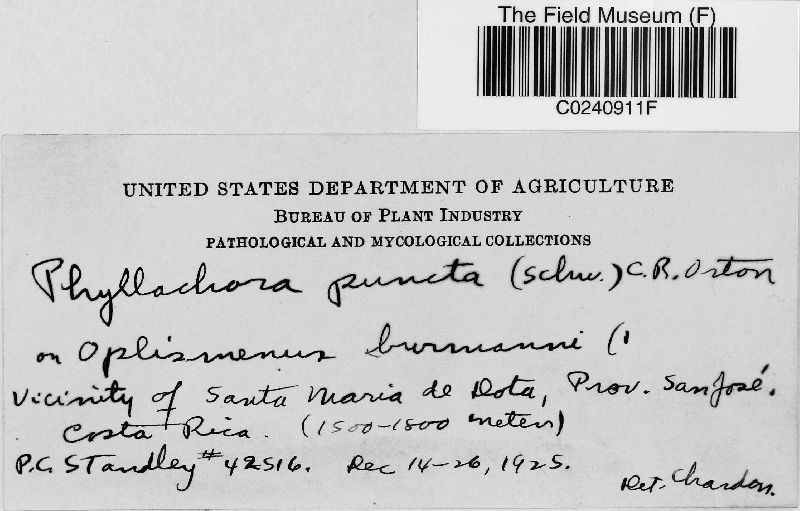 The Field Museum (F)
C0240911F
UNITED STATES DEPARTMENT OF AGRICULTURE
BUREAU OF PLANT INDUSTRY
PATHOLOGICAL AND MYCOLOGICAL COLLECTIONS
Phyllachora puncta (Schw.) C.R. Orton
on Oplismenus burmanni (
Vicinity of Santa Maria de Dota, Prov. San José.
Costa Rica. (1500-1800 meters)
P.C. Standley #42516. Dec 14-26, 1925.
Det. Chardon.